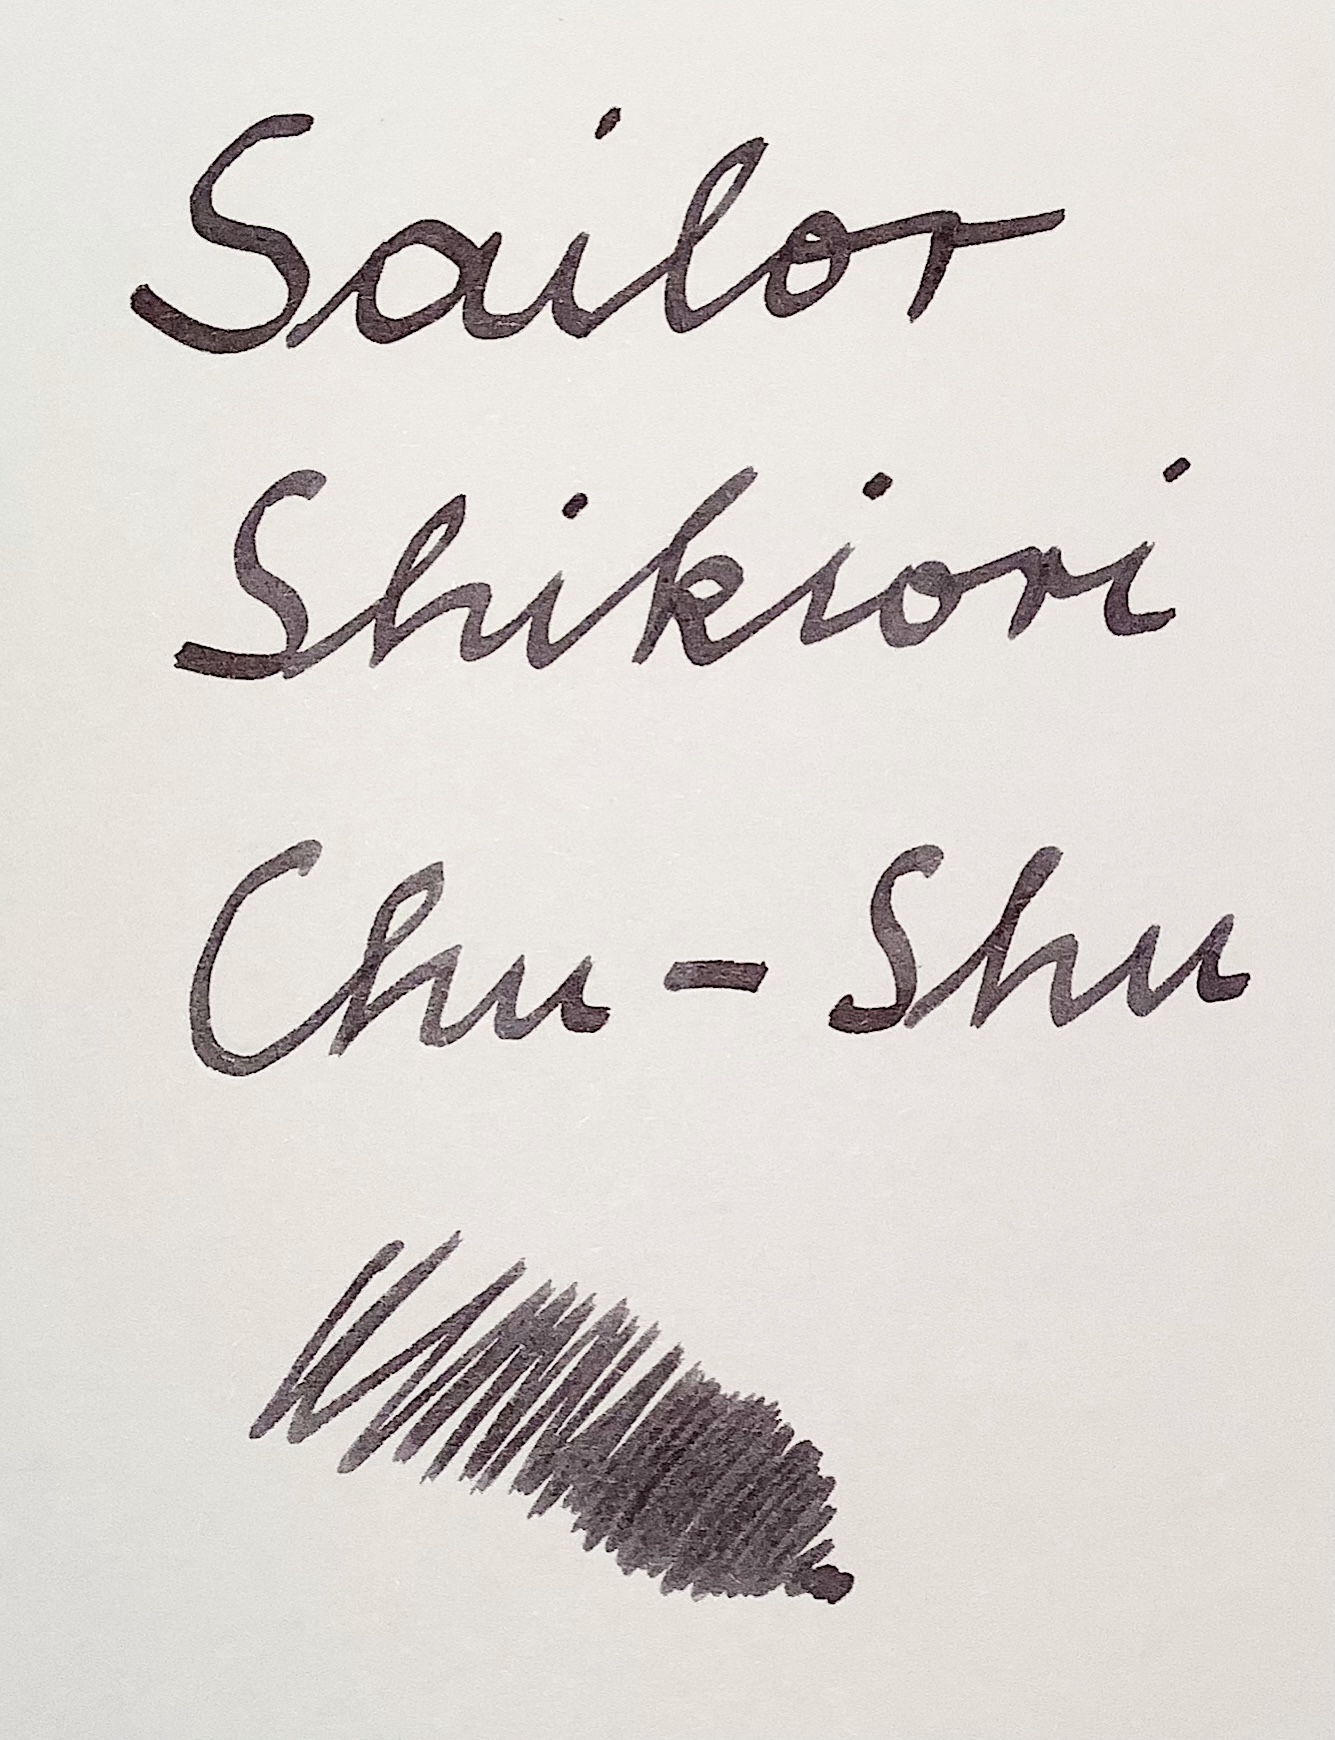 Sailor
Shikiori
Chu - Shu